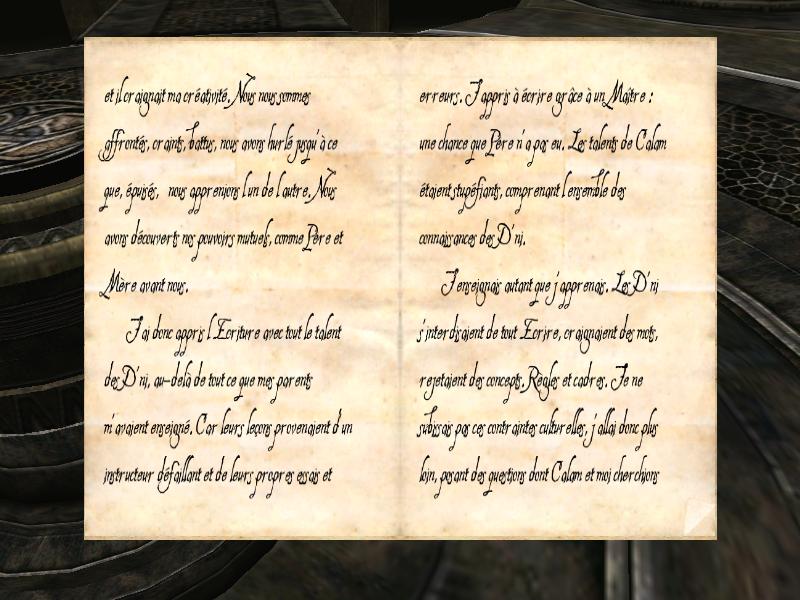 et il craignait ma créativité. Nous nous sommes
affrontés, craints, battus, nous avons hurlé jusqu'à ce
que, épuisés, nous apprenions l'un de l'autre. Nous
avons découverts nos pouvoirs mutuels, comme Père et
Mère avant nous.
J'ai donc appris l'Ecriture avec tout le talent
des D'ni, au-delà de tout ce que mes parents
m'avaient enseigné. Car leurs leçons provenaient d'un
instructeur défaillant et de leurs propres essais et
erreurs. J'appris à écrire grâce à un Maître :
une chance que Père n'a pas eu. Les talents de Calam
étaient stupéfiants, comprenant l'ensemble des
connaissances des D'ni.
J'enseignais autant que j'apprenais. Les D'ni
s'interdisaient de tout Ecrire, craignaient des mots,
rejetaient des concepts. Règles et cadres. Je ne
subissais pas ces contraintes culturelles, j'allai donc plus
loin, posant des questions dont Calam et moi cherchions